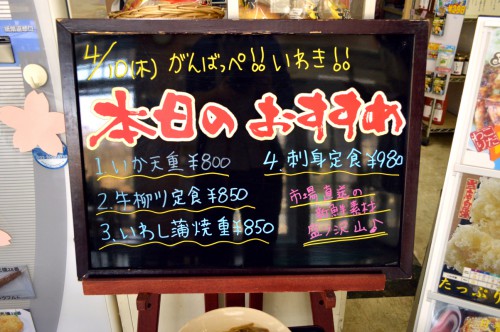 4/10(木) がんばっぺ!! いわき!!
本日の おすすめ
1. いか天重 ¥800
2. 牛柳川定食 ¥850
3. いわし蒲焼重 ¥850
4. 刺身定食 ¥980
市場直送の
新鮮素材
盛り沢山♪
たっぷり